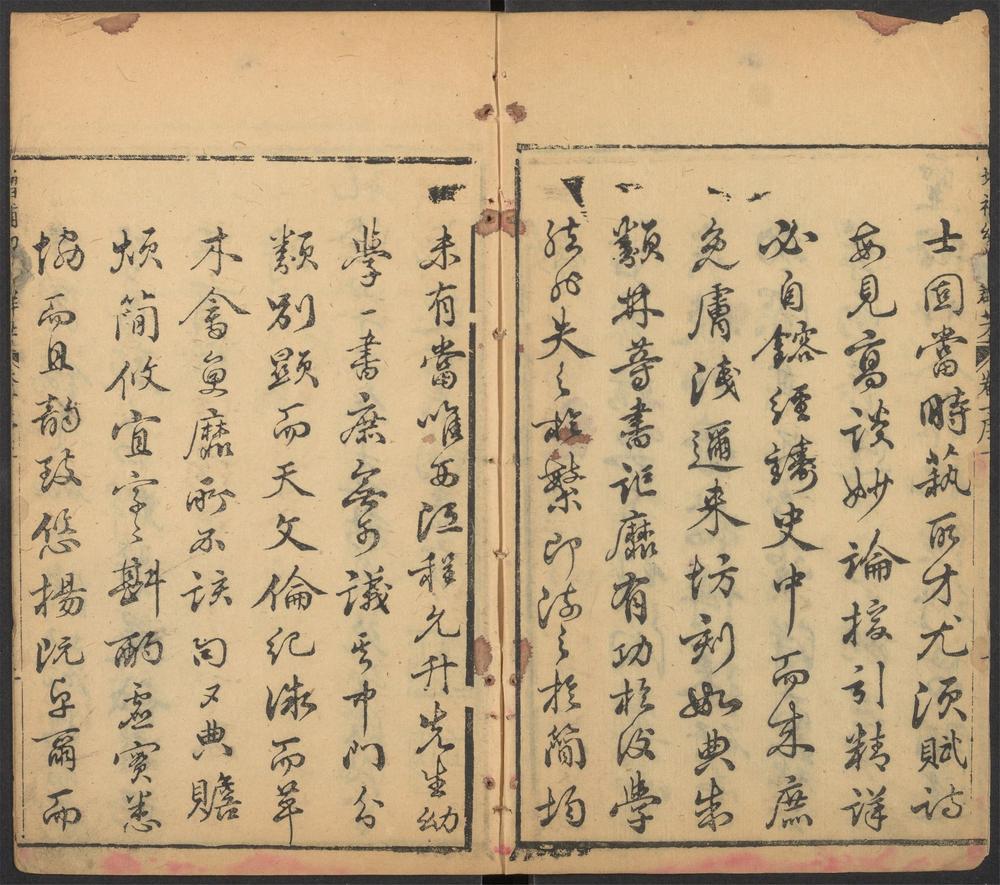 士固當時藝取才尤須賦詩
每見高談妙論援引精詳
必自鎔經鑄史中而來庶
免膚淺邇來坊刻如典制
類林等書詎靡有功於後學
然非失之於繁即流之於簡均
未有當唯西江程允升先生幼
學一書庶無可議其中門分
類別顯而天文倫紀微而草
木禽魚靡所不該句又典贍
煩簡攸宜字々斟酌虛實悉
協而且韻致悠揚既卓爾而